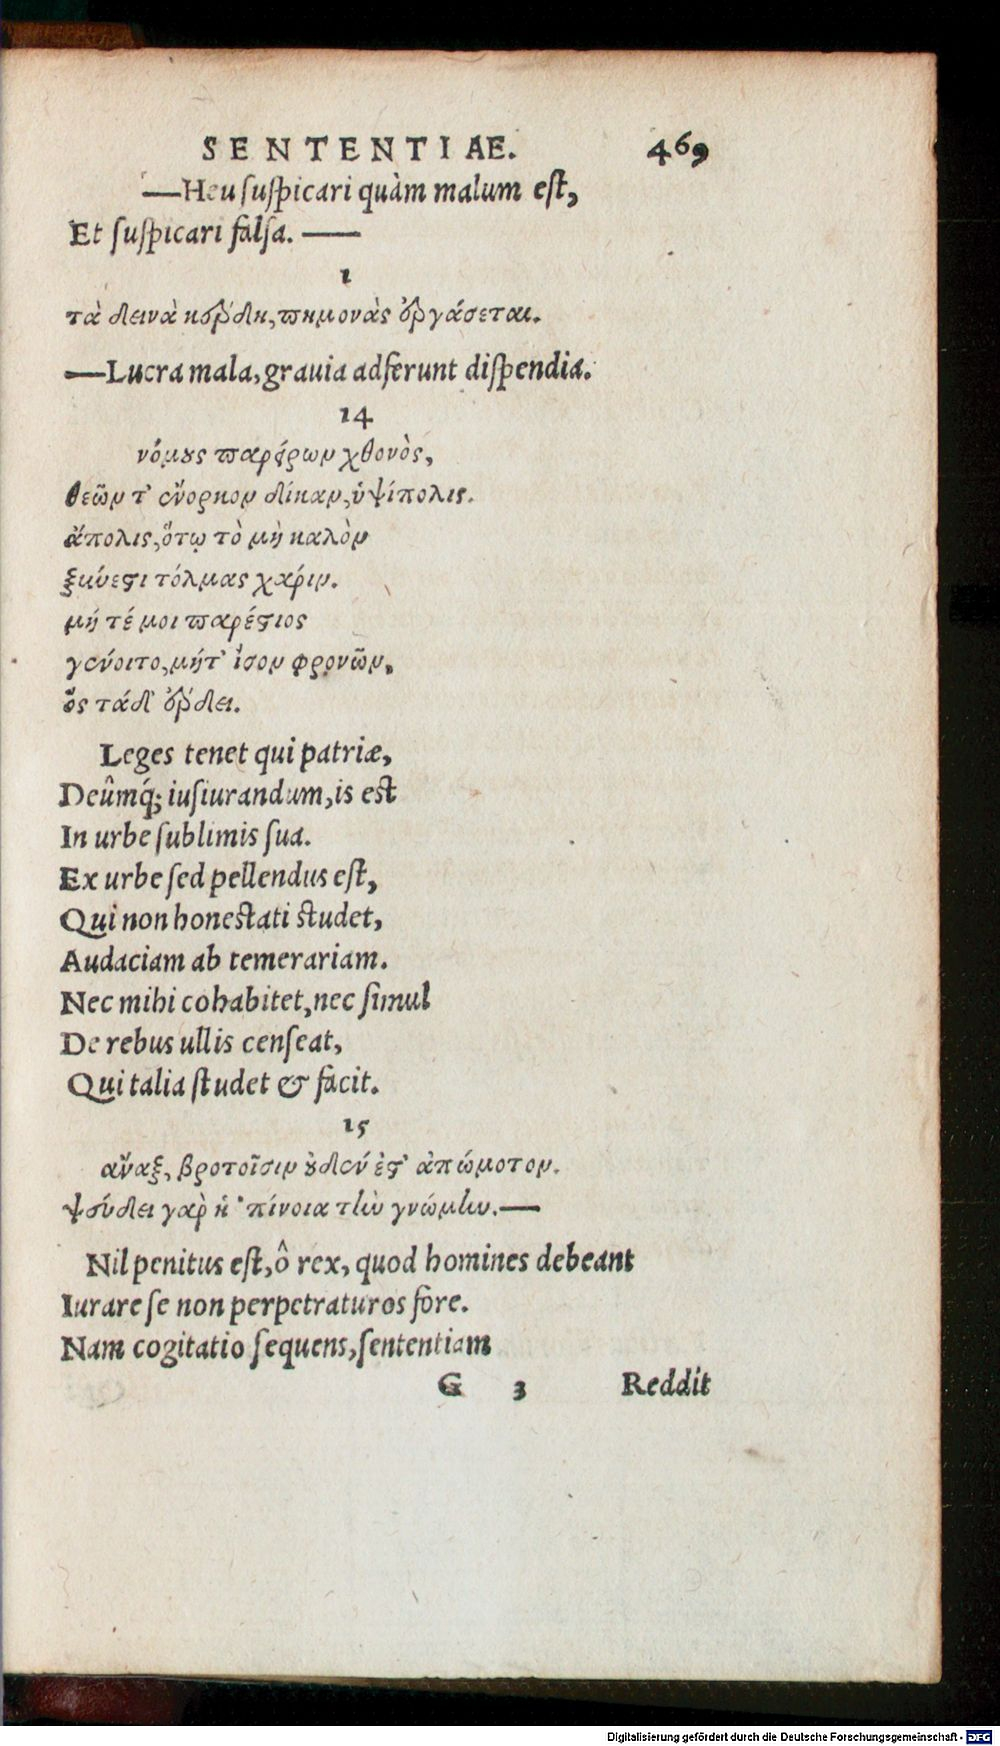 SENTENTIAE. 469
—Heu suspicari quàm malum est,
Et suspicari falsa. —
1
τὰ δεινὰ κέρδη, πημονὰς ἐργάσεται.
—Lucra mala, grauia adferunt dispendia.
14
νόμους παρείρων χθονὸς,
θεῶν τ' ἔνορκον δίκαν, ὑψίπολις.
ἄπολις, ὅτῳ τὸ μὴ καλὸν
ξύνεστι τόλμας χάριν.
μή τέ μοι παρέστιος
γένοιτο, μήτ' ἴσον φρονῶν,
ὃς τάδ' ἔρδει.
Leges tenet qui patriæ,
Deûmq́; iusiurandum, is est
In urbe sublimis sua.
Ex urbe sed pellendus est,
Qui non honestati studet,
Audaciam ab temerariam.
Nec mihi cohabitet, nec simul
De rebus ullis censeat,
Qui talia studet & facit.
15
ἄναξ, βροτοῖσιν οὐδέν ἐστ' ἀπώμοτον.
ψεύδει γὰρ ἡ 'πίνοια τὴν γνώμην.—
Nil penitus est, ô rex, quod homines debeant
Iurare se non perpetraturos fore.
Nam cogitatio sequens, sententiam
G 3 Reddit
Digitalisierung gefördert durch die Deutsche Forschungsgemeinschaft - DFG